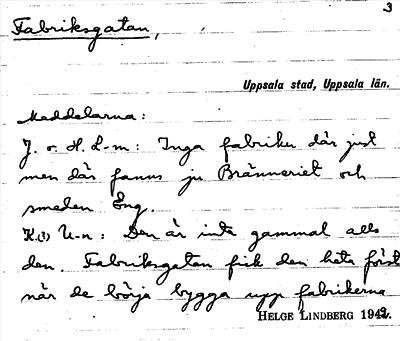 3
Fabriksgatan,
Uppsala stad, Uppsala län.
Meddelarna:
J. o. H. L-m: Inga fabriker där just
men där fanns ju Bränneriet och
smeden Eng
K.(i) U-n: Den är inte gammal alls
den. Fabriksgatan fick den heta först
när de börja bygga upp fabrikerna
HELGE LINDBERG 1942.